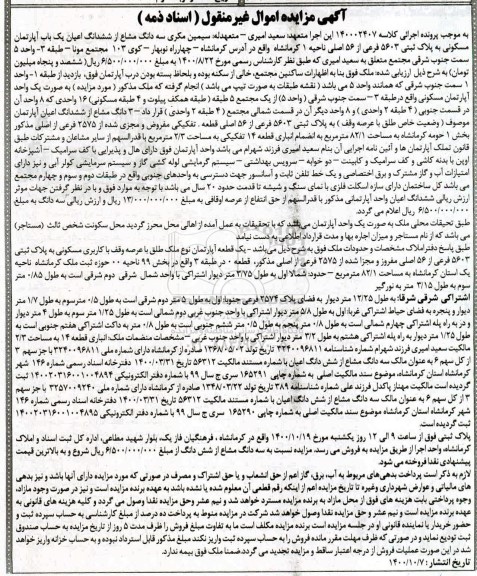 آگهی مزایده اموال غیرمنقول ( اسناد ذمه )
به موجب پرونده اجرائی کلاسه ۱۴۰۰۰۲۴۰۷ این اجرا متعهد: سعید امیری - متعهدله: سیمین مکری سه دانگ مشاع از ششدانگ اعیان یک باب آپارتمان
مسکونی به پلاک ثبتی ۵۶۰۳ فرعی از ۵۶ اصلی ناحیه ۱ کرمانشاه واقع در آدرس کرمانشاه – چهارراه نوبهار – کوی ۱۰۳ مجتمع مونا – طبقه ۳- واحد ۵
سمت جنوب شرقی مجتمع متعلق به سعید امیری که طبق نظر کارشناس رسمی مورخ ۱۴۰۰/۸/۲۲ به مبلغ ۶/۵۰۰/۰۰۰/۰۰۰ ریال( ششصد و پنجاه میلیون
تومان) به شرح ذیل ارزیابی شده: ملک فوق بنا به اظهارات ساکنین مجتمع، خالی از سکنه بوده و بلحاظ بسته بودن درب آپارتمان فوق، بازدید از طبقه ۱- واحد
۱ سمت جنوب شرقی که همانند واحد ۵ می باشد ( نقشه طبقات به صورت تیپ می باشد ) انجام گرفته که ملک مذکور ( مورد مزایده ) به صورت یک واحد
آپارتمان مسکونی واقع در طبقه ۳ – سمت جنوب شرقی ( واحد ۵) از یک مجتمع ۵ طبقه ( طبقه همکف پیلوت و ۴ طبقه مسکونی) ۱۶ واحدی که ۸ واحد آن
در قسمت جنوبی ( ۴ طبقه ۲ واحدی) و ۸ واحد دیگر آن در قسمت شمالی مجتمع ( ۴ طبقه ۲ واحدی ) قرار داد - ۳ دانگ مشاع از ششدانگ اعیان آپارتمان
موصوف ( وضعیت خاص طلق با عرصه وقف) به پلاک ثبتی ۵۶۰۳ فرعی از ۵۶ اصلی قطعه . تفکیکی مفروض و مجزی شده از ۲۵۷۵ فرعی از اصلی مذکور
بخش ۱ حومه کرمانشاه به مساحت ۸۲/۱ مترمربع به انضمام انباری قطعه ۱۴ تفکیکی به مساحت ۲/۳ مترمربع با قدرالسهم از سایر مشاعات و مشترکات طبق
قانون تملک آپارتمان ها و آئین نامه اجرایی آن بنام سعید امیری فرزند شهرام می باشد واحد آپارتمان فوق دارای هال و پذیرایی با کف سرامیک – آشپزخانه
اوپن با بدنه کاشی و کف سرامیک و کابینت – دو خوابه – سرویس بهداشتی – سیستم گرمایشی لوله کشی گاز و سیستم سرمایشی کولر آبی و نیز دارای
امتیازات آب و گاز مشترک و برق اختصاصی و یک خط تلفن ثابت و آسانسور جهت دسترسی به واحدهای جنوبی واقع در طبقات دوم و سوم و چهارم مجتمع
می باشد کل ساختمان دارای سازه اسکلت فلزی با نمای سنگ و شیشه تا قدمت حدود ۲۰ سال می باشد با توجه به موارد فوق و با در نظر گرفتن جهات موثر
ارزش ریالی ششدانگ اعیان واحد آپارتمانی مذکور با قدرالسهم از حق انتفاع از عرصه اوقافی به مبلغ ۱۳/۰۰۰/۰۰۰/۰۰۰ ریال و ارزش ریالی سه دانگ به مبلغ
۶/۵۰۰/۰۰۰/۰۰۰ ریال اعلام می گردد.
طبق تحقیقات محلی ملک به صورت یک واحد آپارتمان می باشد که با تحقیقات به عمل آمده از اهالی محل محرز گردید محل سکونت شخص ثالث (مستاجر)
می باشد که از نام مستاجر و میزان اجاره بها و مدت قرارداد اطلاعی به دست نیامد
طبق پاسخ دفتر املاک مشخصات و حدودات ملک فوق به شرح ذیل می باشد - یک قطعه آپارتمان نوع ملک طلق با عرصه وقف با کاربری مسکونی به پلاک ثبتی
۵۶۰۳ فرعی از ۵۶ اصلی مفروز و مجزا شده از ۲۵۷۵ فرعی از اصلی مذکور، قطعه ۰ در طبقه ۳ واقع در بخش ۹۹ ناحیه ۰۰ حوزه ثبت ملک کرمانشاه ناحیه
یک استان کرمانشاه به مساحت ۸۲/۱ مترمربع - حدود: شمالا اول به طول ۳/۷۵ متر دیوار اشتراکی با واحد شمال شرقی دوم شرقی است به طول ۰/۸۵ متر
سوم به طول ۳/۱۵ متر به نورگیر
اشتراکی شرقی شرقا: به طول ۱۲/۲۵ متر دیوار به فضای پلاک ۳۵۷۴ فرعی جنوبا: اول به طول ۵ متر دوم شرقی است به طول ۰/۵ متر سوم به طول ۱/۷ متر
دیوار و پنجره به فضای حیاط اشتراکی غربا: اول به طول ۵/۸ متر دیوار اشتراکی با واحد جنوب غربی دوم شمالی است به طول ۱/۲۵ متر سوم به طول ۴ متر دیوار
و در به راه پله اشتراکی چهارم شمالی است به طول ۰/۸ متر پنجم به طول ۰/۵ متر ششم جنوبی است به طول ۰/۸ متر به داکت اشتراکی هفتم جنوبی است به
طول ۱/۲۵ متر دیوار به راه پله اشتراکی هشتم به طول ۳/۲ متر دیوار اشتراکی با واحد جنوب غربی – مشخصات منضمات ملک: انباری قطعه ۱۴ به مساحت ۲/۳
مالکیت سعید امیری فرزند شهرام شماره شناسنامه ۳۲۴۰۰۹۶۸۱۱ تاریخ تولد ۱۳۶۸/۰۵/۰۲ صادره از کرمانشاه دارای شماره ملی ۳۲۴۰۰۹۶۸۱۱ با جز سهم ۳
از کل سهم ۶ به عنوان مالک سه دانگ مشاع از شش دانگ اعیان با شماره مستند مالکیت ۵۶۳۱۲ تاریخ ۱۴۰۰/۰۳/۳۱ دفترخانه اسناد رسمی شماره ۱۴۶ شهر
کرمانشاه استان کرمانشاه، موضوع سند مالکیت اصلی به شماره چاپی ۱۶۵۲۹۱ سری ج سال ۹۹ با شماره دفتر الکترونیکی ۱۴۰۰۲۰۳۱۶۰۰۱۰۰۴۸۹۴ ثبت
گردیده است مالکیت مهناز پاکدل فرزند علی شماره شناسنامه ۳۸۹ تاریخ تولد ۱۳۴۸/۰۳/۲۲ صادره از کرمانشاه دارای شماره ملی ۳۲۵۷۰۰۹۲۴۰ با جز سهم
۳ از کل سهم ۶ به عنوان مالک سه دانگ مشاع از شش دانگ اعیان با شماره مستند مالکیت ۵۶۳۱۲ تاریخ ۱۴۰۰/۰۳/۳۱ دفترخانه اسناد رسمی شماره ۱۴۶
شهر کرمانشاه استان کرمانشاه موضوع سند مالکیت اصلی به شماره چاپی ۱۶۵۲۹۰ سری ج سال ۹۹ با شماره دفتر الکترونیکی ۱۴۰۰۲۰۳۱۶۰۰۱۰۰۴۸۹۵
ثبت گردیده است.
پلاک ثبتی فوق از ساعت ۹ الی ۱۲ روز یکشنبه مورخ ۱۴۰۰/۱۰/۱۹ واقع در کرمانشاه ، فرهنگیان فاز یک، بلوار شهید مطاعی، اداره کل ثبت اسناد و املاک
کرمانشاه، واحد اجرا از طریق مزایده به فروش می رسد. مزایده نسبت به سه دانگ مشاع از شش دانگ از مبلغ ۶/۵۰۰/۰۰۰/۰۰۰ ریال شروع و به بالاترین قیمت
پیشنهادی نقدا فروخته می شود.
لازم به ذکر است پرداخت بدهی های مربوط به آب، برق، گاز اعم از حق انشعاب و یا حق اشتراک و مصرف در صورتی که مورد مزایده دارای آنها باشد و نیز بدهی
های مالیاتی و عوارض شهرداری وغیره تا تاریخ مزایده اعم از اینکه رقم قطعی آن معلوم شده یا نشده باشد به عهده برنده مزایده است و نیز در صورت وجود مازاد،
وجوه پرداختی بابت هزینه های فوق از محل مازاد به برنده مزایده مسترد خواهد شد و نیم عشر وحق مزایده نقدا وصول می گردد و کلیه هزینه های قانونی به
عهده برنده مزایده است و نیم عشر و حق مزایده نقدا وصول خواهد شد شرکت در مزایده منوط به پرداخت ده درصد از مبلغ کارشناسی به حساب سپرده ثبت و
حضور خریدار یا نماینده قانونی او در جلسه مزایده است برنده مزایده مکلف است ما به تفاوت مبلغ فروش را ظرف مدت ۵ روز از تاریخ مزایده به حساب صندوق
ثبت تودیع نماید و در صورتی که ظرف مهلت مقرر مانده فروش را به حساب سپرده ثبت واریز نکند مبلغ مذکور قابل استرداد نبوده و به حساب خزانه واریز خواهد
شد در این صورت عملیات فروش از درجه اعتبار ساقط و مزایده تجدید می گردد.ضمنا ملک فوق بیمه ندارد.
تاریخ انتشار: ۱۴۰۰/۱۰/۷